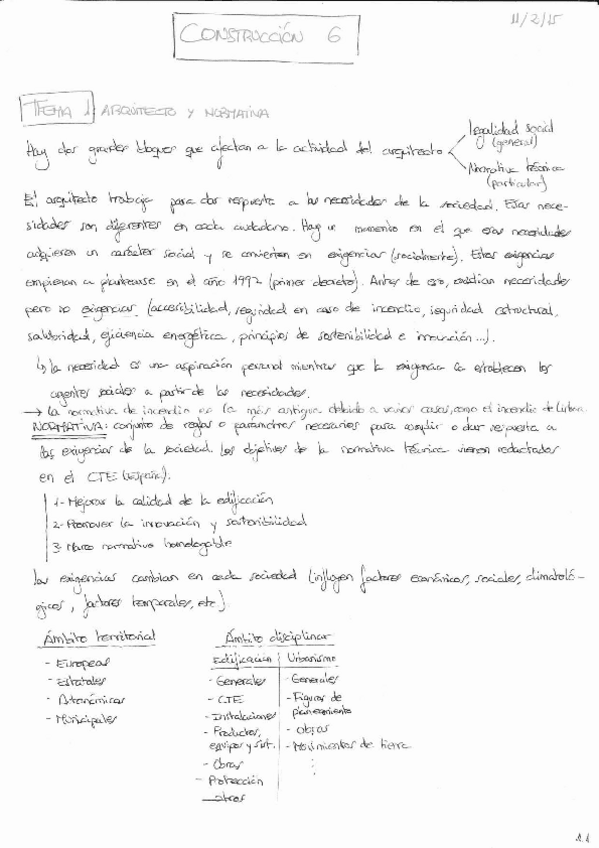 11/2/15
CONSTRUCCIÓN 6
TEMA 1 ARQUITECTO Y NORMATIVA
legalidad social
(general)
Hay dos grandes bloques que afectan a la actividad del arquitecto
Normativa técnica
(particular)
El arquitecto trabaja para dar respuesta a las necesidades de la sociedad. Estas nece-
sidades son diferentes en cada ciudadano. Hay un momento en el que esas necesidades
adquieren un carácter social y se convierten en exigencias (socialmente). Estas exigencias
empiezan a plantearse en el año 1992 (primer decreto). Antes de eso, existían necesidades
pero no exigencias (accesibilidad, seguridad en caso de incendio, seguridad estructural,
salubridad, eficiencia energética, principios de sostenibilidad e innovación...).
↳ la necesidad es una aspiración personal mientras que la exigencia la establecen los
agentes sociales a partir de las necesidades.
→ La normativa de incendio es la más antigua debido a varios casos, como el incendio de Lisboa.
NORMATIVA: conjunto de reglas o parámetros necesarios para cumplir o dar respuesta a
las exigencias de la sociedad. Los objetivos de la normativa técnica vienen redactados
en el CTE (España).
1- Mejorar la calidad de la edificación
2- Promover la innovación y sostenibilidad
3- Marco normativo homologable
Las exigencias cambian en cada sociedad (influyen factores económicos, sociales, climatoló-
gicos, factores temporales, etc)
Ámbito territorial
- Europeas
- Estatales
- Autonómicas
- Municipales
Ámbito disciplinar
Edificación
- Generales
- CTE
- Instalaciones
- Productos,
equipos y sist.
- Obras
- Protección
- otros
Urbanismo
- Generales
- Figuras de
planeamiento
- Obras
- Movimientos de tierra
1.1